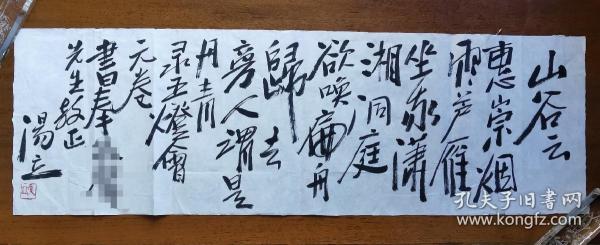 山谷云
惠崇烟
雨芦雁
坐我瀟
湘洞庭
欲喚扁舟
歸去
旁人謂是
丹青
录五燈會
元卷
書奉
先生教正
湯立
孔夫子旧书网
www.kongfz.com